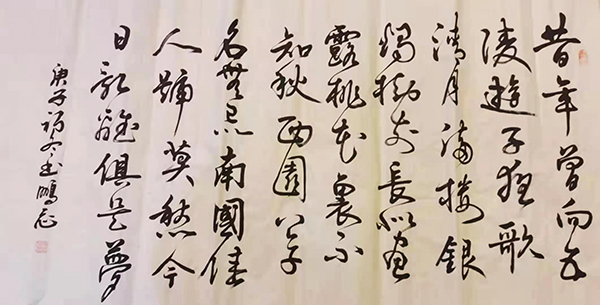 昔年曾向五
陵遊子夜歌
清月滿樓銀
燭樹前長似晝
露桃花裏不
知秋西園公子
名無忌南國佳
人號莫愁今
日亂離俱是夢
庚子初冬玉鵬